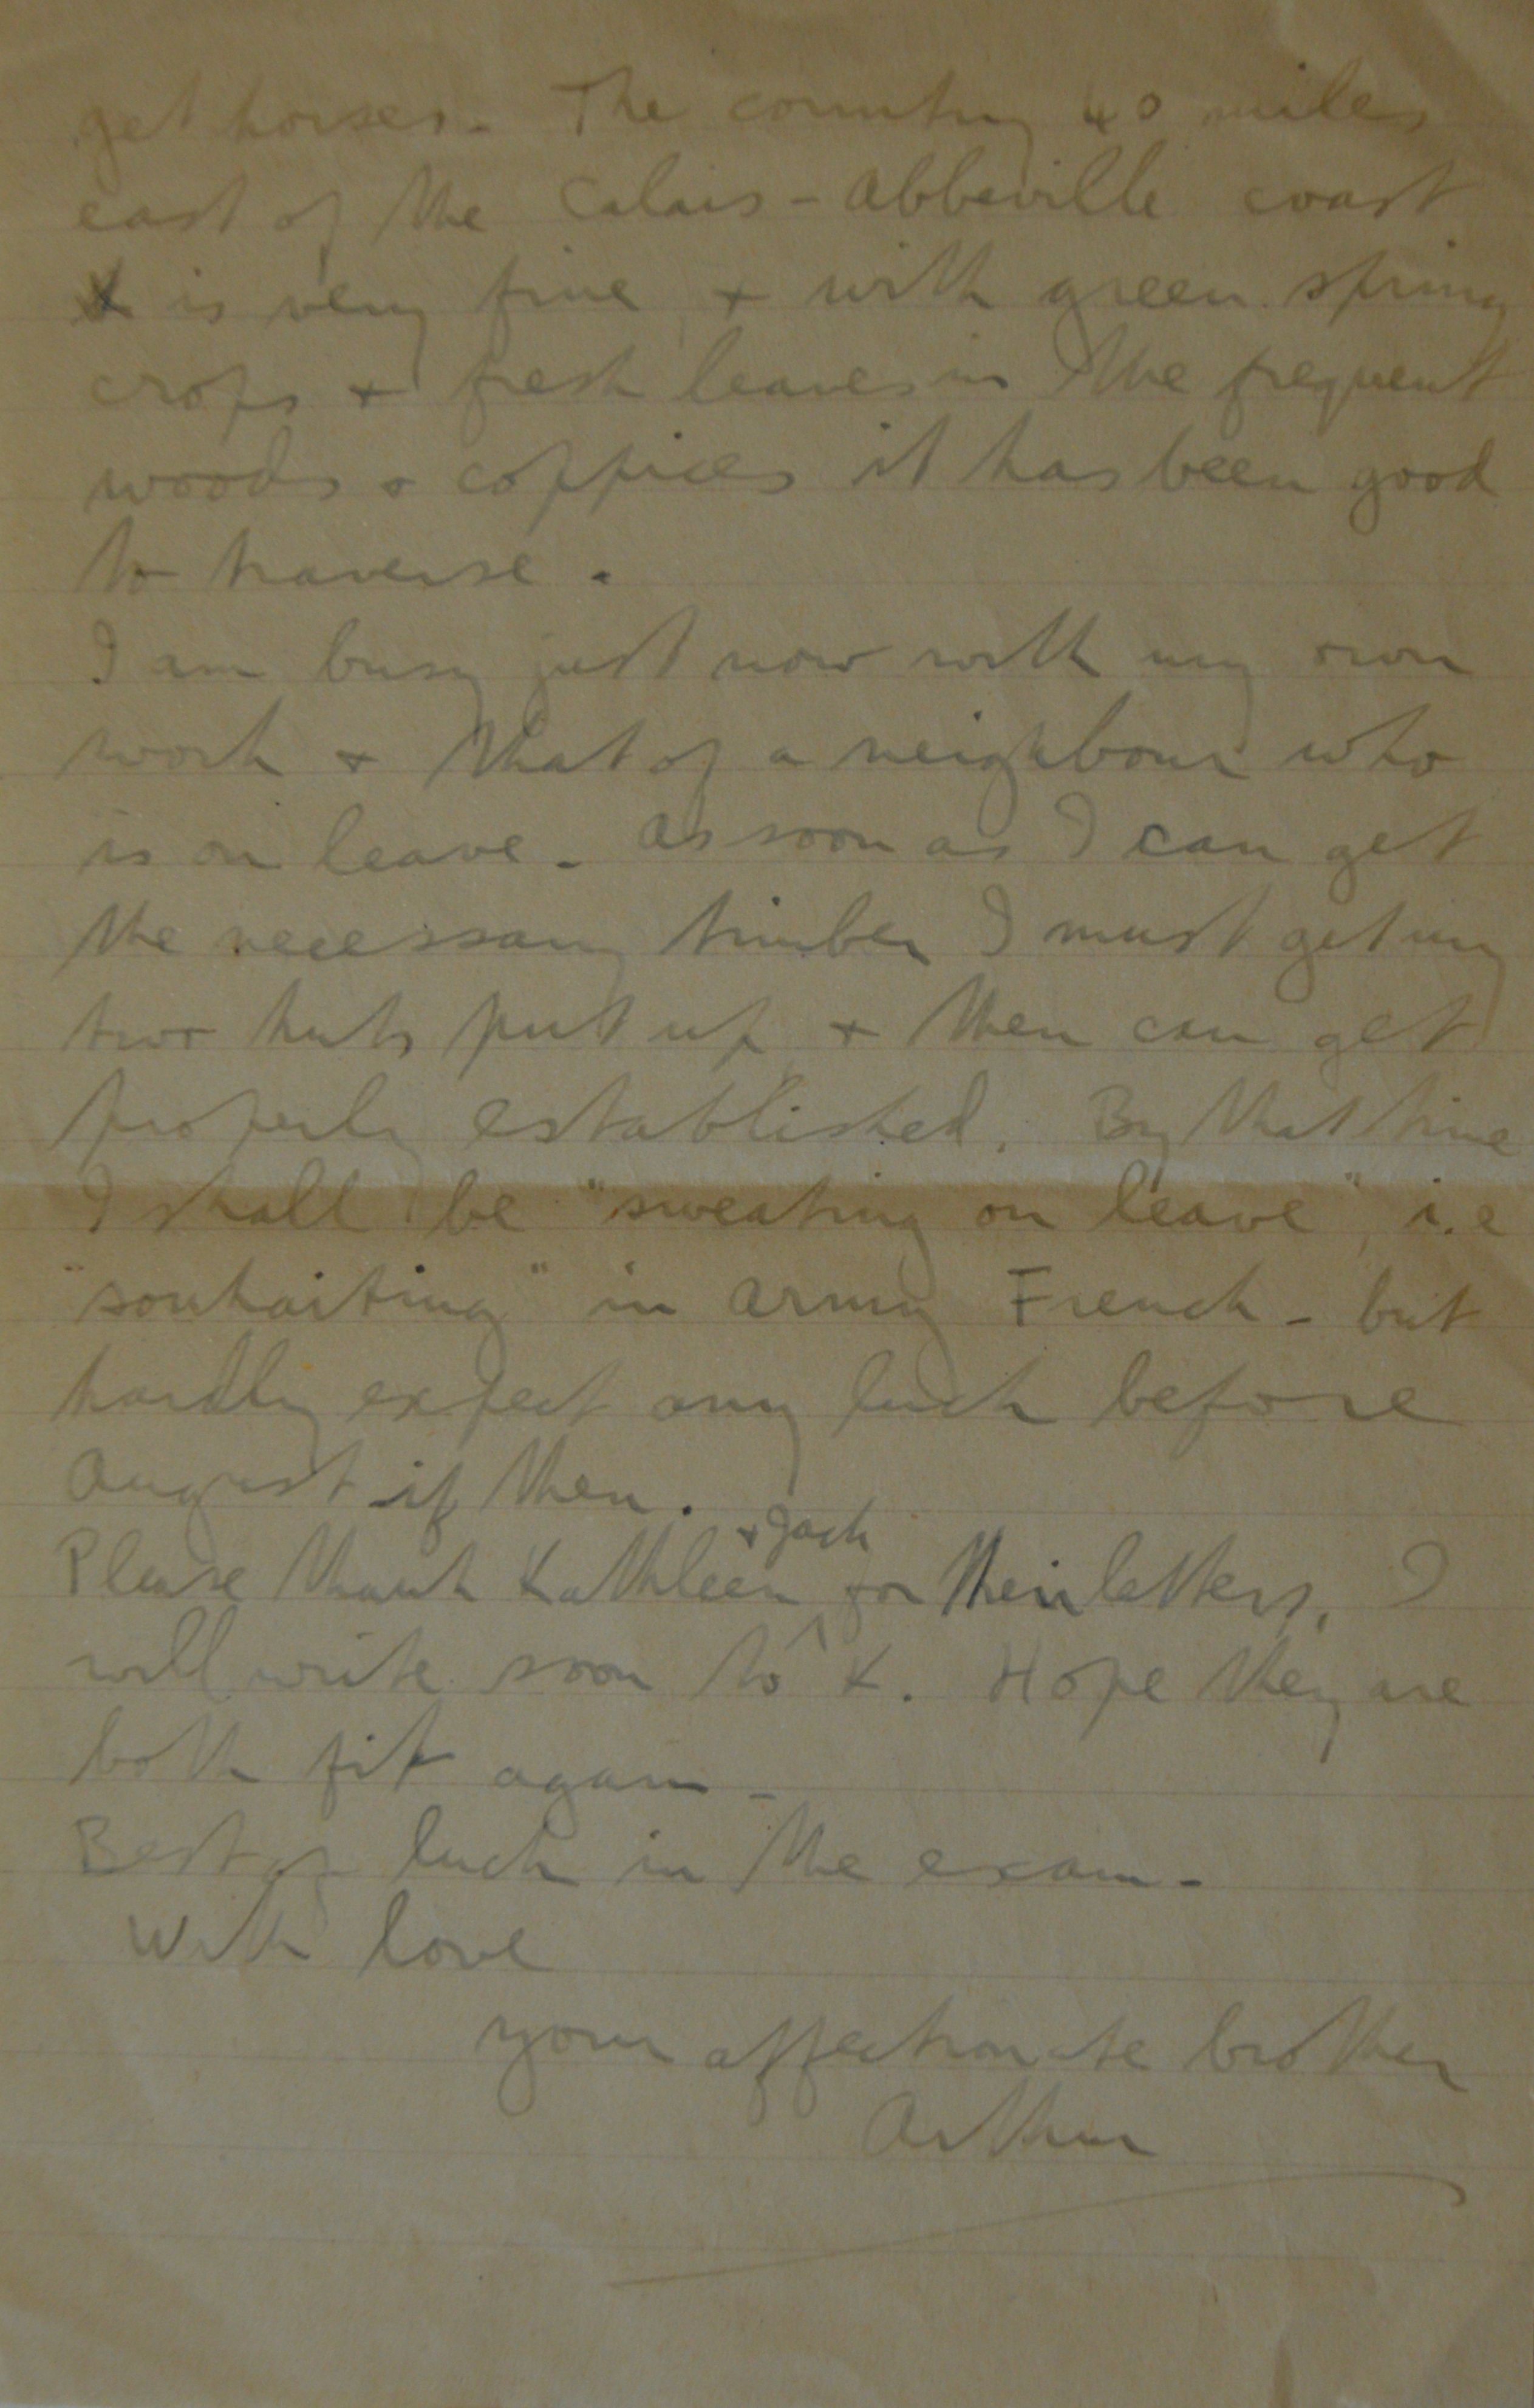 get horses. The country 40 miles
east of the Calais - Abbeville coast
is very fine, & with green spring
crops & fresh leaves in the frequent
woods & coppices it has been good
to traverse.
I am busy just now with my own
work & that of a neighbour who
is on leave. As soon as I can get
the necessary timber I must get my
two huts put up & then can get
properly established. By that time
I shall be "sweating on leave", i.e
"souhaiting" in army French - but
hardly expect any luck before
August if then.
& Jack
Please thank Kathleen for their letters. I
will write soon to K. Hope they are
both fit again -
Best of luck in the exam -
With love
your affectionate brother
Arthur